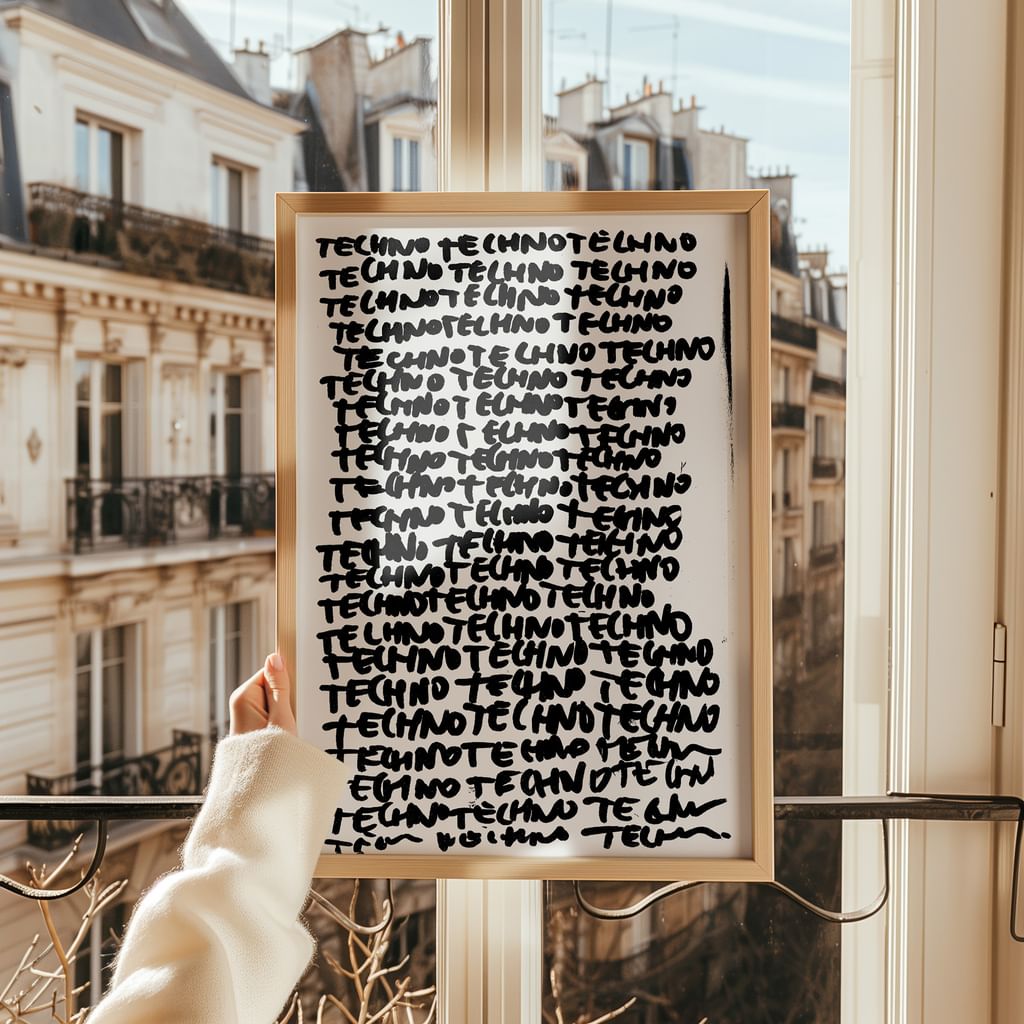 TECHNO TECHNO TECHNO
TECHNO TECHNO TECHNO
TECHNO TECHNO TECHNO
TECHNO TECHNO TECHNO
TECHNO TECHNO TECHNO
TECHNO TECHNO TECHNO
TECHNO TECHNO
TECHNO TECHNO TECHNO
TECHNO TECHNO TECHNO
TECHNO TECHNO TECHNO
TECHNO TECHNO
TECHNO TECHNO TECHNO
TECHNO TECHNO TECHNO
TECHNO TECHNO TECHNO
TECHNO TECHNO TECHNO
TECHNO TECHNO TECHNO
TECHNO TECHNO TECHNO
TECHNO TECHNO TECHNO
TECHNO TECHNO
TECHNO TECHNO
TECHNO TECHNO